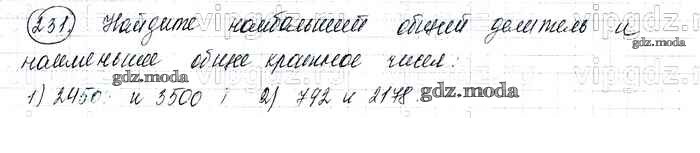 231. Найдите наибольший общий делитель и
наименьшее общее кратное чисел:
gdz.moda
gdz.moda
1) 2450 и 3500; 2) 792 и 2178.
gdz.moda